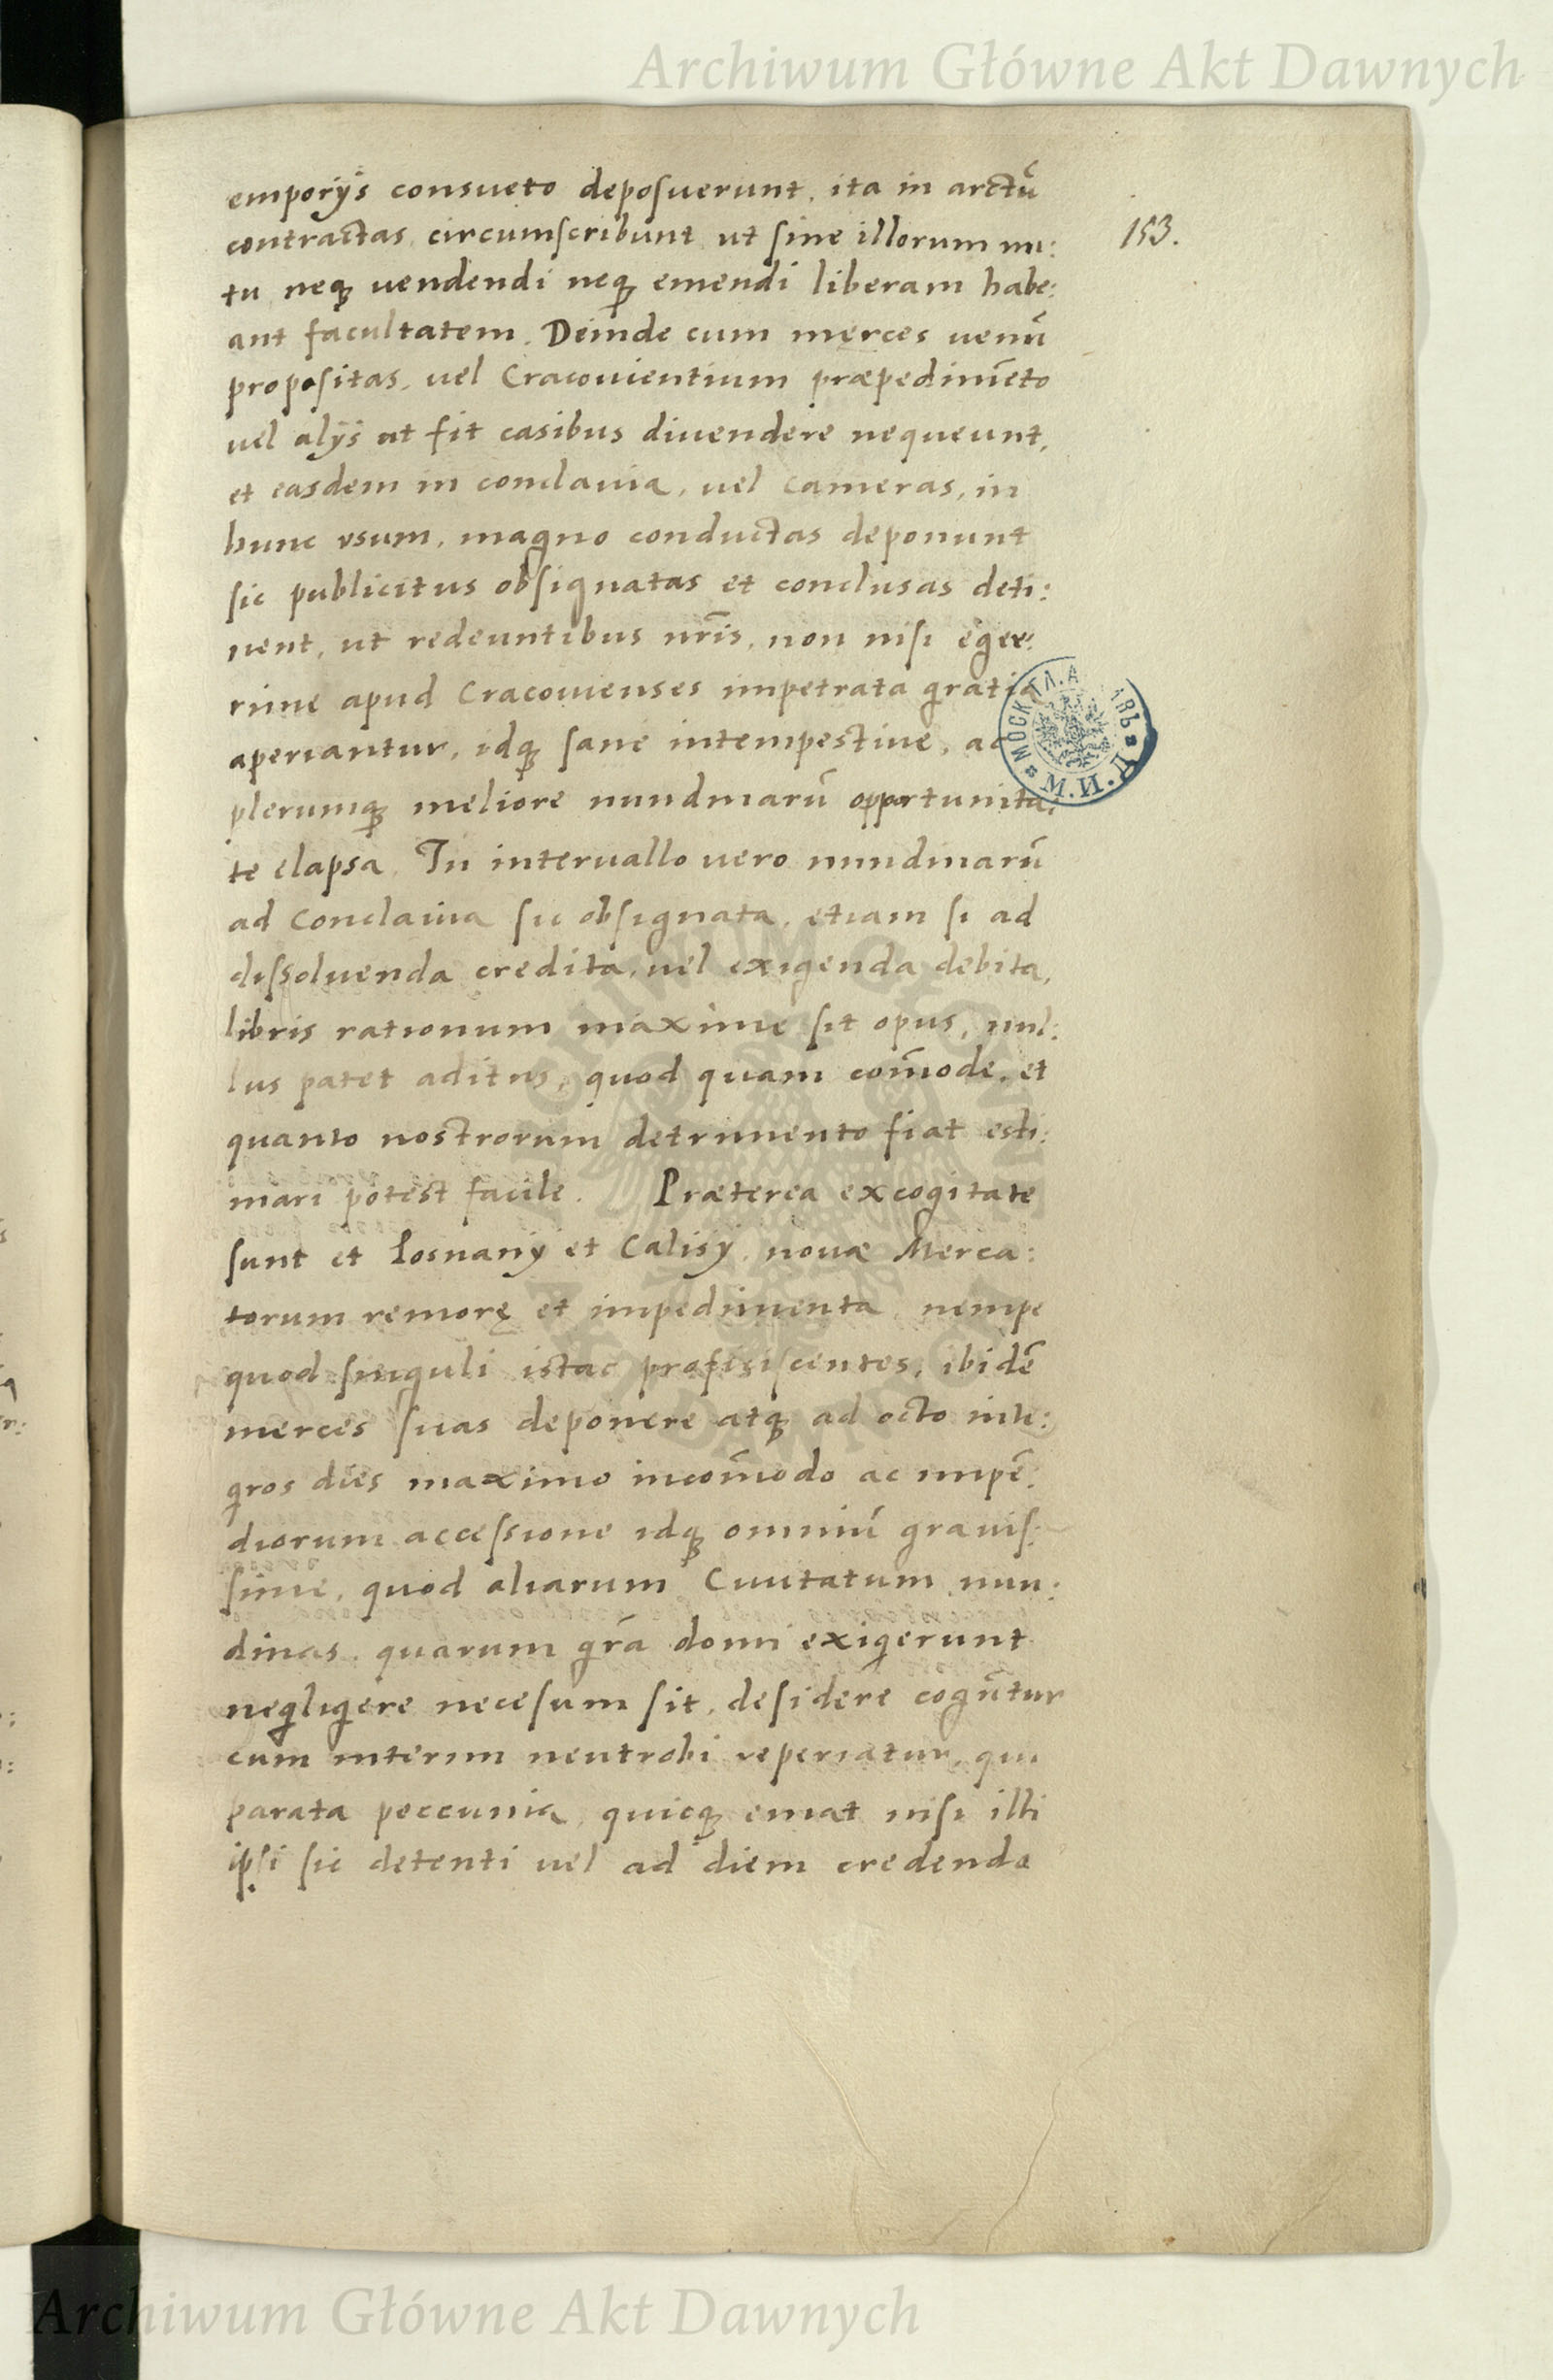 Archiwum Główne Akt Dawnych
emporijs consueto deposuerunt, ita in arctū
153.
contractas, circumscribunt ut sine illorum nu:
tu neq; uendendi neq; emendi liberam habe:
ant facultatem. Deinde cum merces uenū
propositas, uel Cracouientium præpedimēto
uel alijs ut fit casibus diuendere nequeunt,
et easdem in conclauia, uel cameras, in
hunc vsum, magno conductas deponunt
sic publicitus obsignatas et conclusas deti:
nent, ut redeuntibus nr̄is, non nisi eger:
rime apud Cracouienses impetrata gratia
aperiantur, idq; sane intempestiue, ac
plerumq; meliore nundinarū opportunita:
te elapsa. In interuallo vero nundinarū
ad Conclauia sic obsignata, etiam si ad
dissoluenda credita, uel exigenda debita,
libris rationum maxime sit opus, nul:
lus patet aditus, quod quam com̄ode, et
quanto nostrorum detrimento fiat esti:
mari potest facile. Præterea excogitate
sunt et Posnanij et Calisij, nouæ Merca:
torum remorę et impedimenta, nempe
quod singuli istac profisiscentes, ibidē
merces suas deponere atq; ad octo inte:
gros dies maximo incom̄odo ac impē:
diorum accessione idq; omniū grauis:
sime, quod aliarum Ciuitatum nun:
dinas, quarum gr̄a domi exigerunt
negligere necesum sit, desidere cogūtur
cum interim neutrobi reperiatur, qui
parata peccunia, quicq; emat nisi illi
ipsi sic detenti uel ad diem credenda
МОСК. ГЛ. А
ИВЪ
М.И.Д.
ARCHIWUM GŁÓWNE AKT DAWNYCH
Archiwum Główne Akt Dawnych